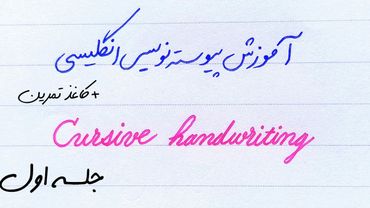 آموزش پیوسته نویسی انگلیسی
+ کاغذ تمرین
Cursive handwriting
جلسه اول